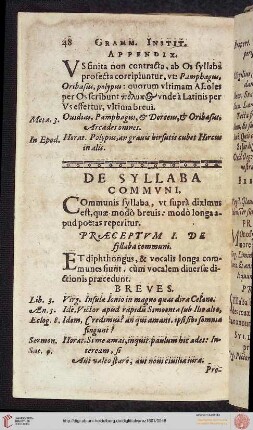 48 GRAMM. INSTIT.
APPENDIX.
VS finita non contracta, ab Os syllaba
profecta corripiuntur, vt: Pamphagus,
Oribasus, polypus: quorum vltimam AEoles
per Os scribunt vnde à Latinis per
Vs effertur, vltima breui.
Meta. 3. Ouidius, Pamphagus, & Dorceus, & Oribasus,
Arcades omnes.
In Epod. Horat. Polypus, an grauis hirsutis cubet Hircus
in alis.
DE SYLLABA
COMMVNI.
Communis syllaba, vt suprà diximus
est, quæ modò breuis: modò longa a-
pud poëtas reperitur.
PRÆCEPTVM I. DE
syllaba communi.
ET diphthongus, & vocalis longa com-
munes sunt, cùm vocalem diuersæ di-
ctionis præcedunt.
BREVES.
Lib. 3. Virg. Insulæ Ionio in magno quas dira Celæno.
Æn. 5. Ide. Victor apud rapidū Simoenta sub Ilio alto,
Eclog. 8. Idem, Credimus? an qui amant, ipsi sibi somnia
fingunt?
Sermon. Horat. Si me amas, inquit paulum hic ades: In-
Sat. 9. teream, si
Aut valeo stare, aut noui ciuilia iura.
Pre-